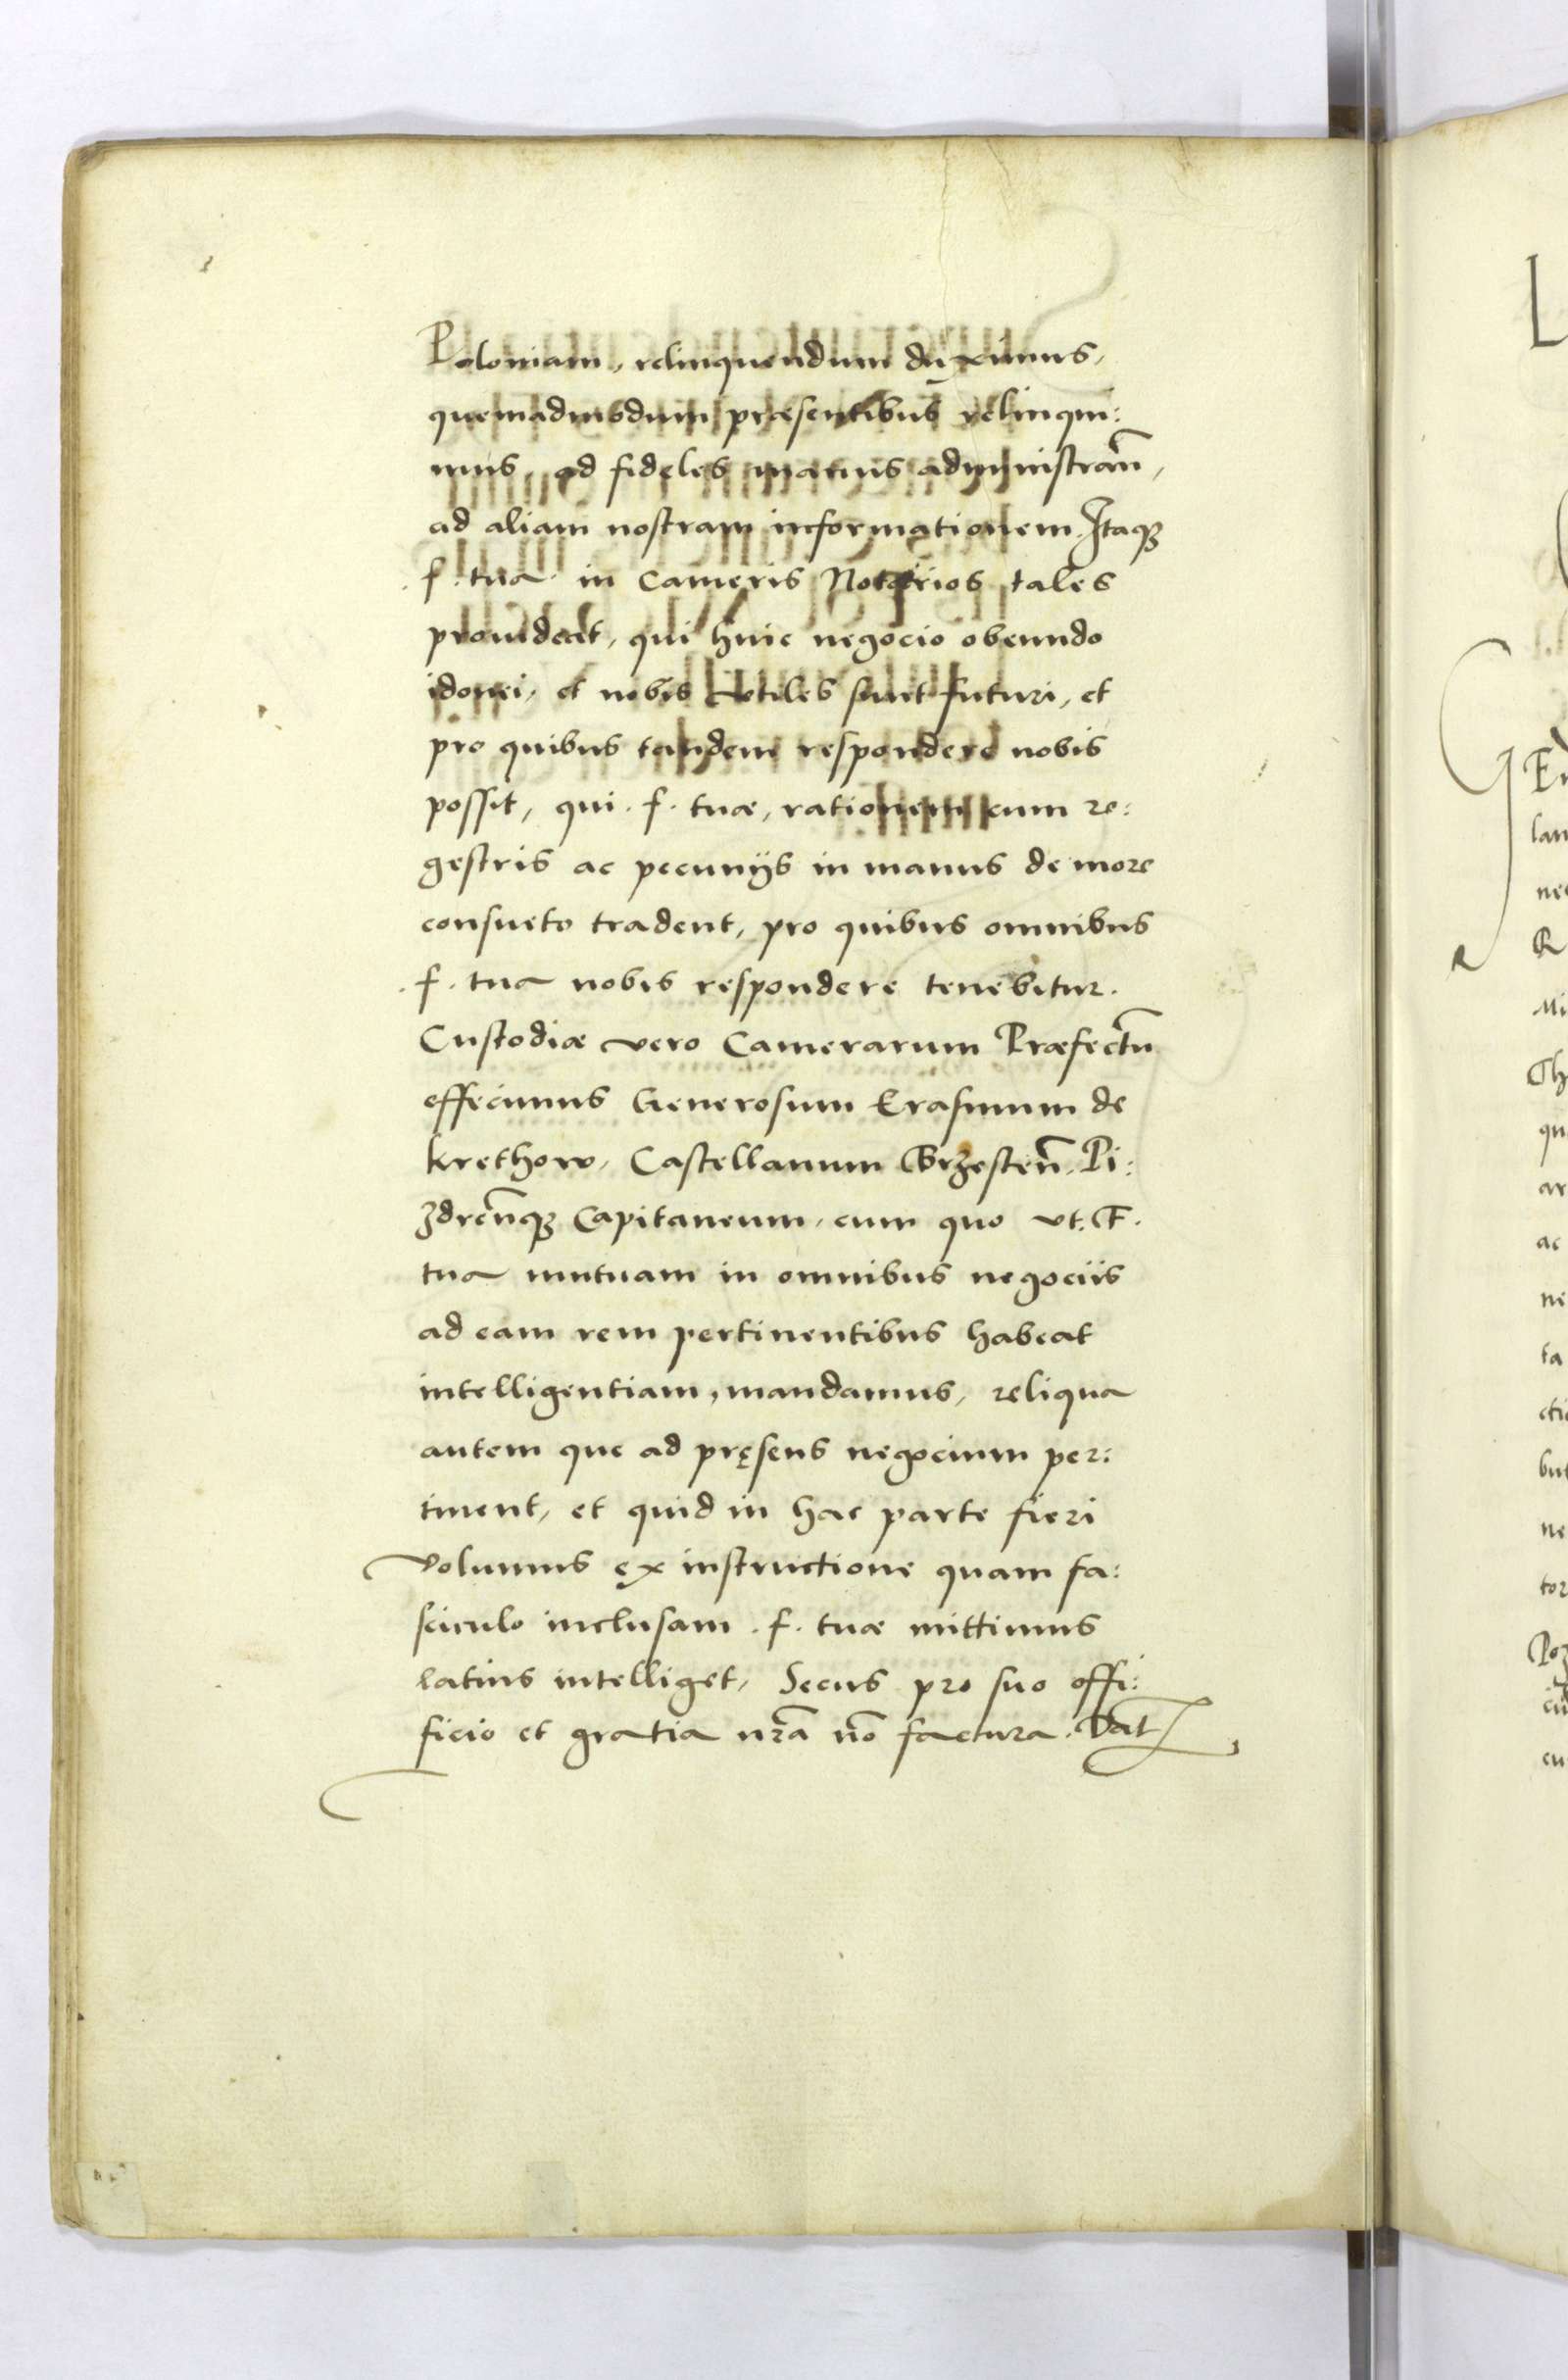 Poloniam, relinquendum duximus,
quemadmodum præsentibus relinqui:
mus, ad fideles manus administran̄,
ad aliam nostram informationem. Itaqꝫ
.f. tua in Cameris Notarios tales
prouideat, qui huic negocio obeundo
idonei, et nobis vtiles sunt futuri, et
pro quibus tandem respondere nobis
possit, qui .f. tuæ, rationem cum re:
gestris ac pecunijs in manus de more
consueto tradent, pro quibus omnibus
.f. tua nobis respondere tenebitur.
Custodiæ vero Camerarum Præfectū
effecimus Generosum Erasmum de
Krethow, Castellanum Brzesten̄. Pi:
zdren̄qꝫ Capitaneum, cum quo vt. F.
tua mutuam in omnibus negociis
ad eam rem pertinentibus habeat
intelligentiam, mandamus, reliqua
autem que ad pręsens negocium per:
tinent, et quid in hac parte fieri
volumus ex instructione quam fa:
sciculo inclusam .f. tuæ mittimus
latius intelliget, Secus pro suo offi:
ficio et gratia nr̄a nō factura. Dat
L
En
lan
ne
R
Mi
Th
qu
ar
ac
ne
ta
cti
but
ne
tor
Poz
cu